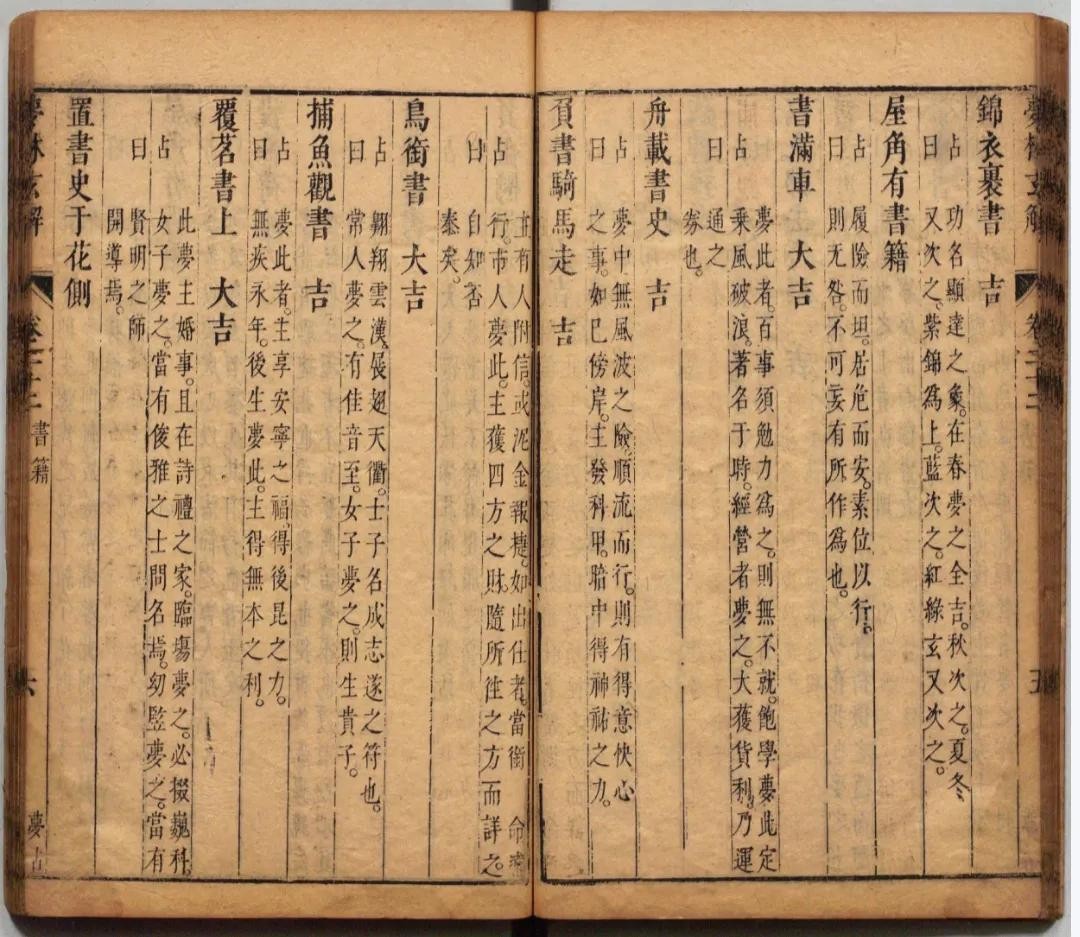 夢林玄解
卷二十二
五
錦衣裹書　吉
占曰
功名顯達之象。在春夢之全吉。秋次之。夏冬
又次之。紫錦為上。藍次之。紅綠玄又次之。
屋角有書籍
占曰
履險而坦。居危而安。素位以行。
則无咎。不可妄有所作為也。
書滿車　大吉
占曰
夢此者。百事須勉力為之。則無不就。飽學夢此定
乘風破浪。著名于時。經營者夢之。大獲貨利。乃運
通之
券也。
舟載書史　吉
占曰
夢中無風波之險。順流而行。則有得意快心
之事。如已傍岸。主發科甲。暗中得神祐之力。
負書騎馬走　吉
占曰
主有人附信。或泥金報捷。如出仕者。當銜　命來
行。市人夢此。主獲四方之財。隨所往之方而詳之
自知否
泰矣。
鳥銜書　大吉
占曰
翺翔雲漢。展翅天衢。士子名成志遂之符也。
常人夢之。有佳音至。女子夢之。則生貴子。
捕魚觀書　吉
占曰
夢此者。主享安寧之福。得後昆之力。
無疾永年。後生夢此。主得無本之利。
覆茗書上　大吉
占曰
此夢主婚事。且在詩禮之家。臨場夢之。必掇巍科。
女子夢之。當有俊雅之士問名焉。幼監夢之。當有
賢明之師
開導焉。
置書史于花側
夢林玄解
卷二十二
書籍
六
夢占